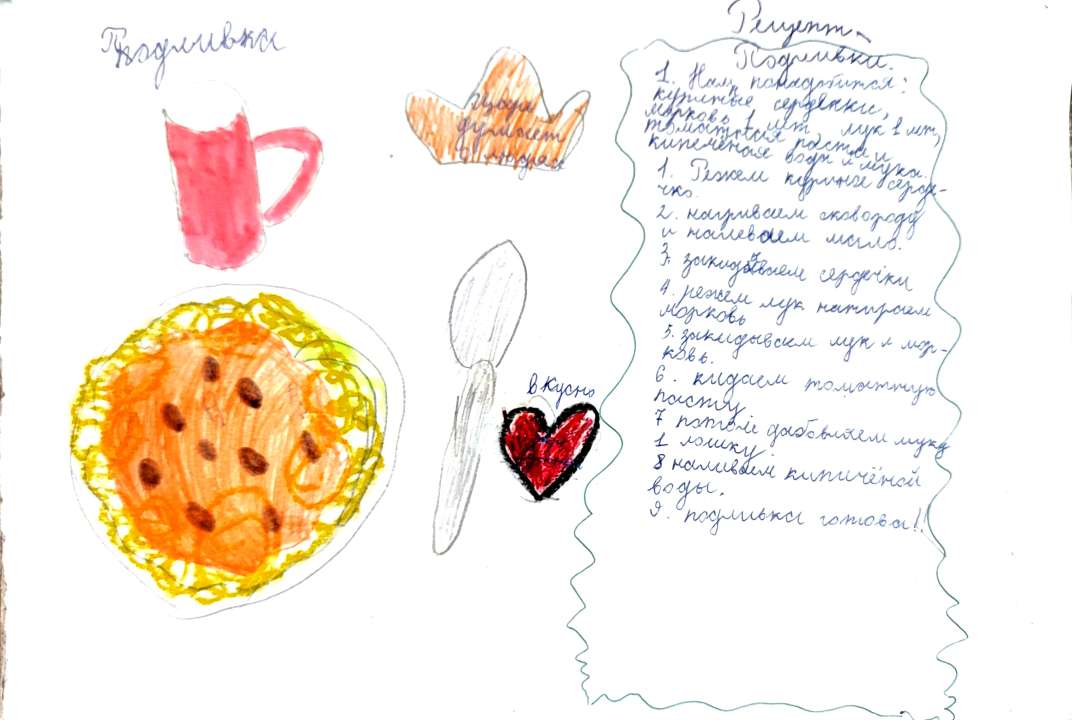 Подливка
думает
о людях
вкусно
Рецепт
Подливки.
1. Нам понадобится:
куриные сердечки,
морковь 1 шт, лук 1 шт,
томатная паста и
кипечёная вода и мука.
1. Режем куриные серде-
чко.
2. нагриваем сковороду
и налеваем масло.
3. закидываем сердечки
4. режем лук натираем
морковь
5. закидываем лук и мор-
ковь.
6. кидаем томатную
пасту
7 потом дабовляем муку
1 ложку.
8 наливаем кипичёной
воды.
9. подливка готова!!